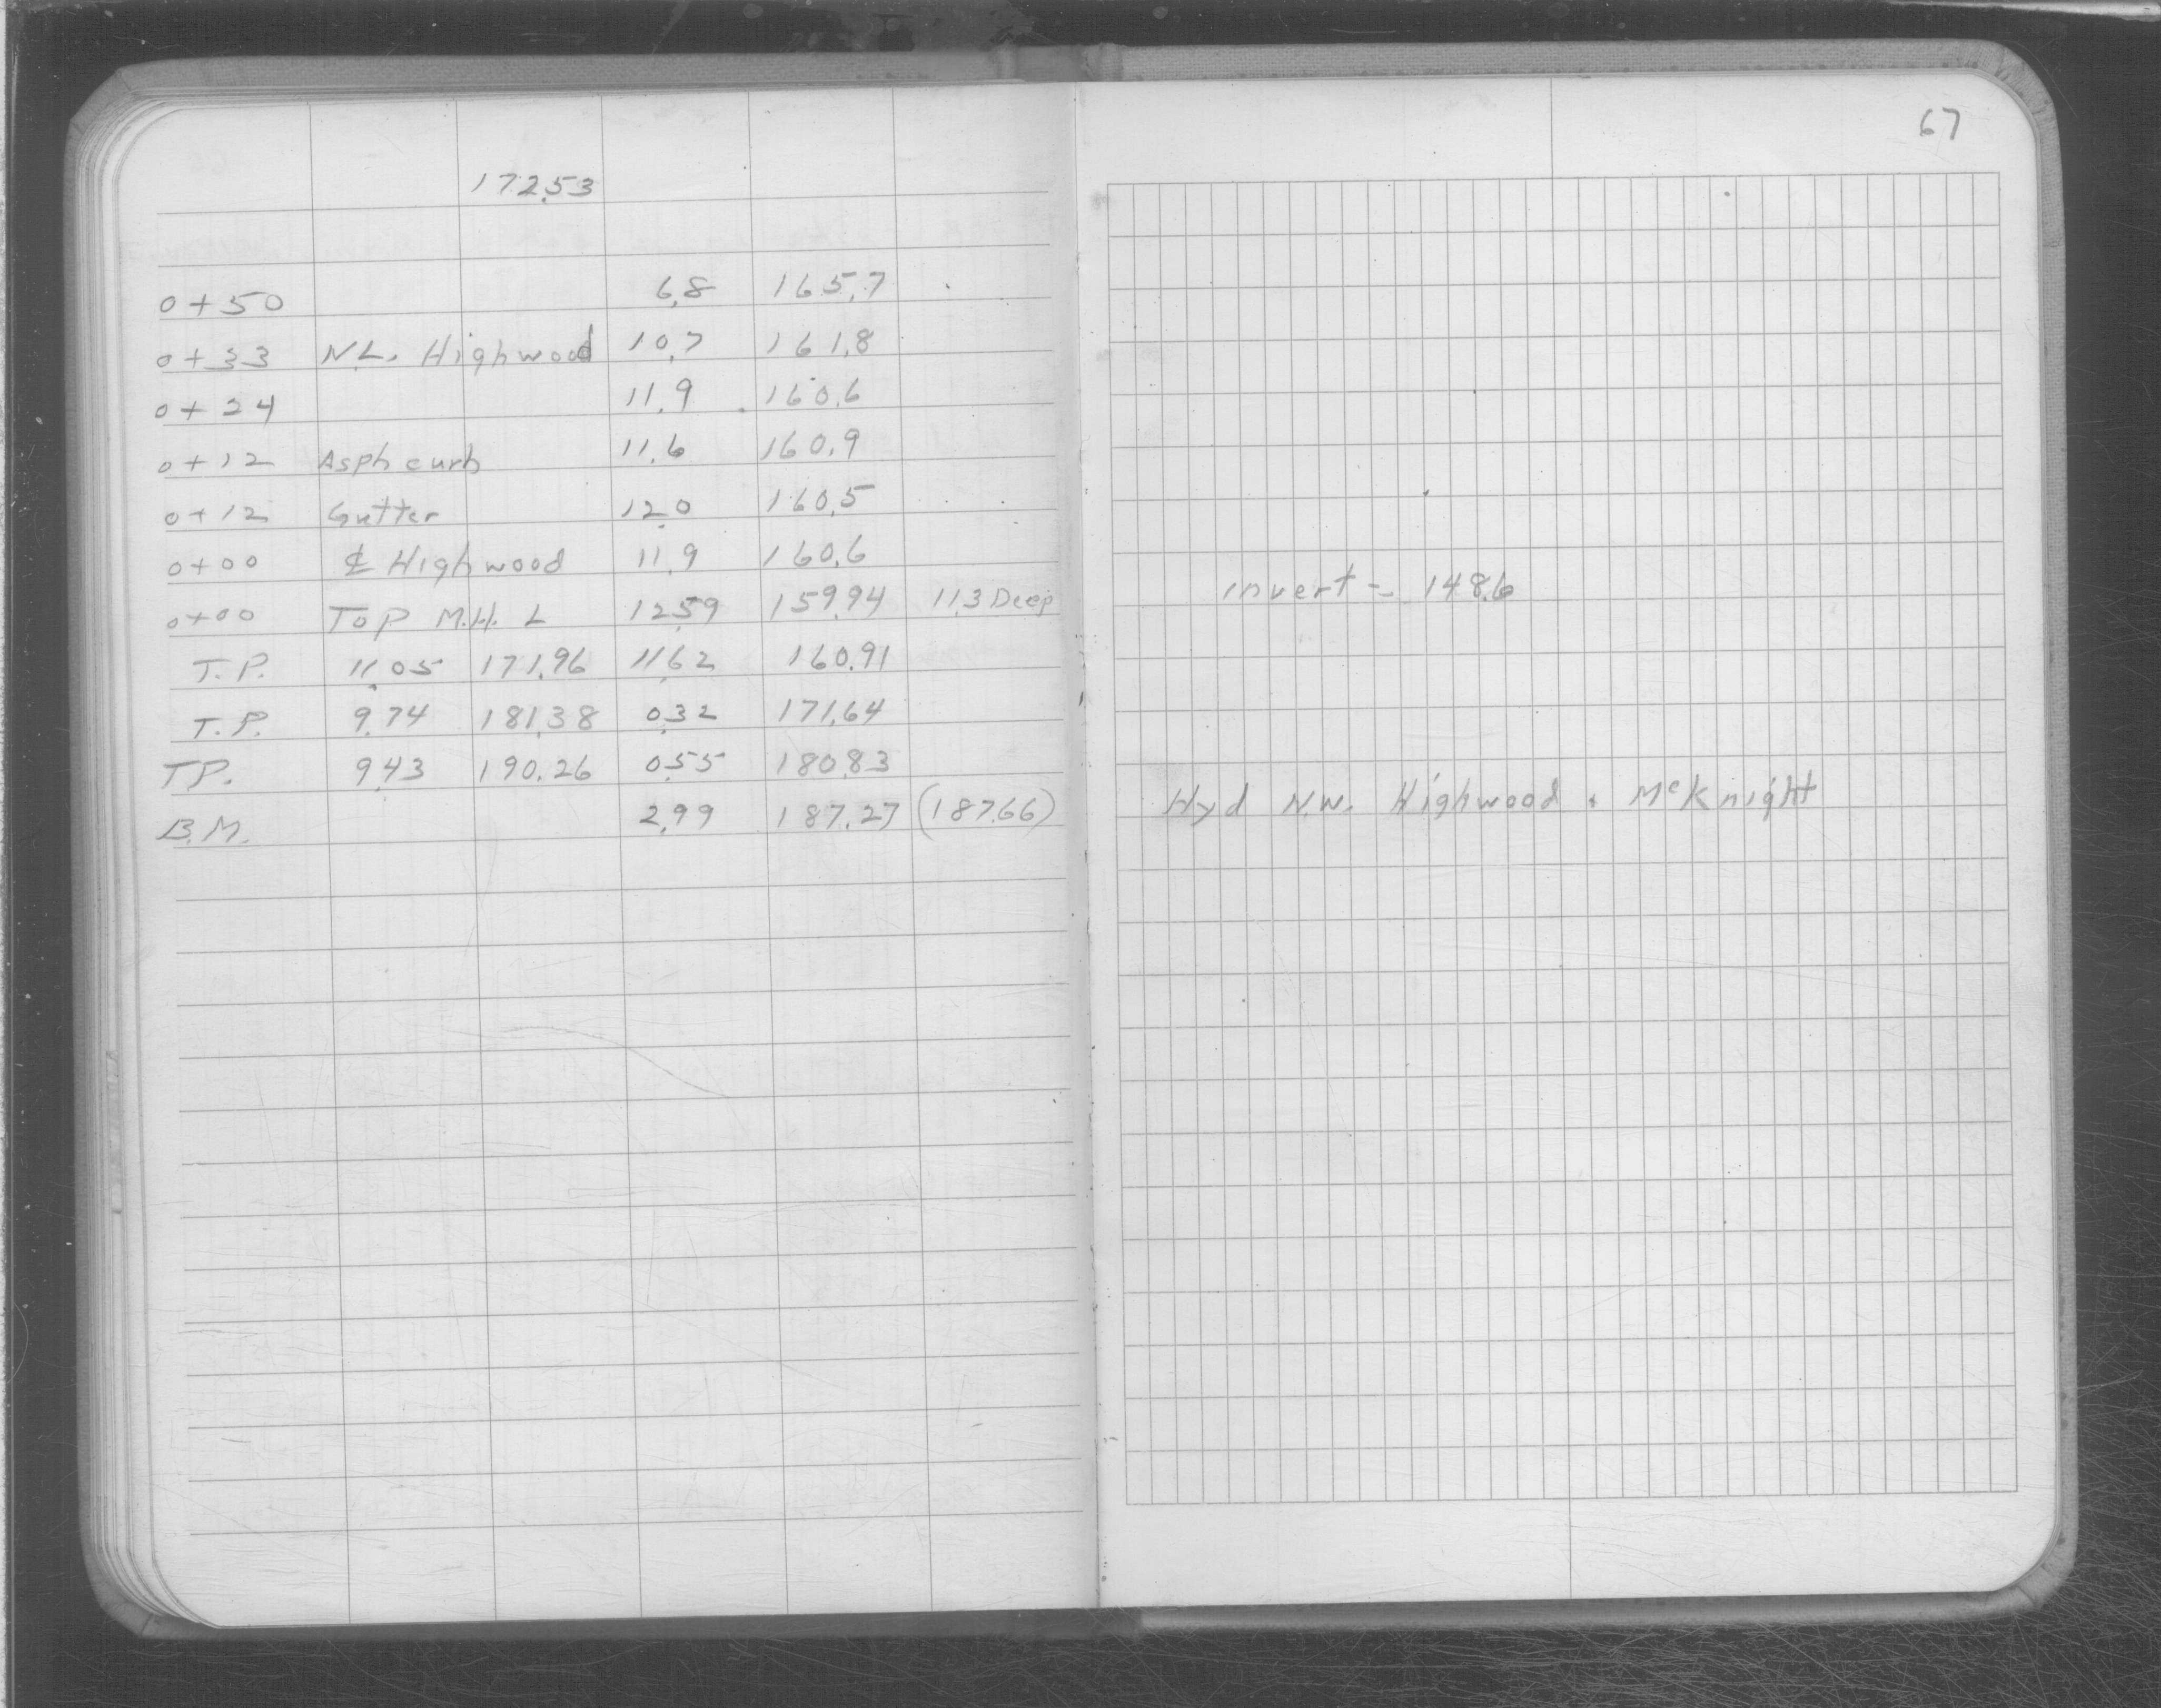 172.53
0+50 6.8 165.7
0+33 N.L. Highwood 10.7 161.8
0+24 11.9 160.6
0+12 Asph curb 11.6 160.9
0+12 Gutter 12.0 160.5
0+00 ℄ Highwood 11.9 160.6
0+00 Top M.H. L 12.59 159.94 11.3 Deep
T.P. 11.05 171.96 11.62 160.91
T.P. 9.74 181.38 0.32 171.64
T.P. 9.43 190.26 0.55 180.83
B.M. 2.99 187.27 (187.66)
67
invert = 148.6
Hyd N.W. Highwood . McKnight